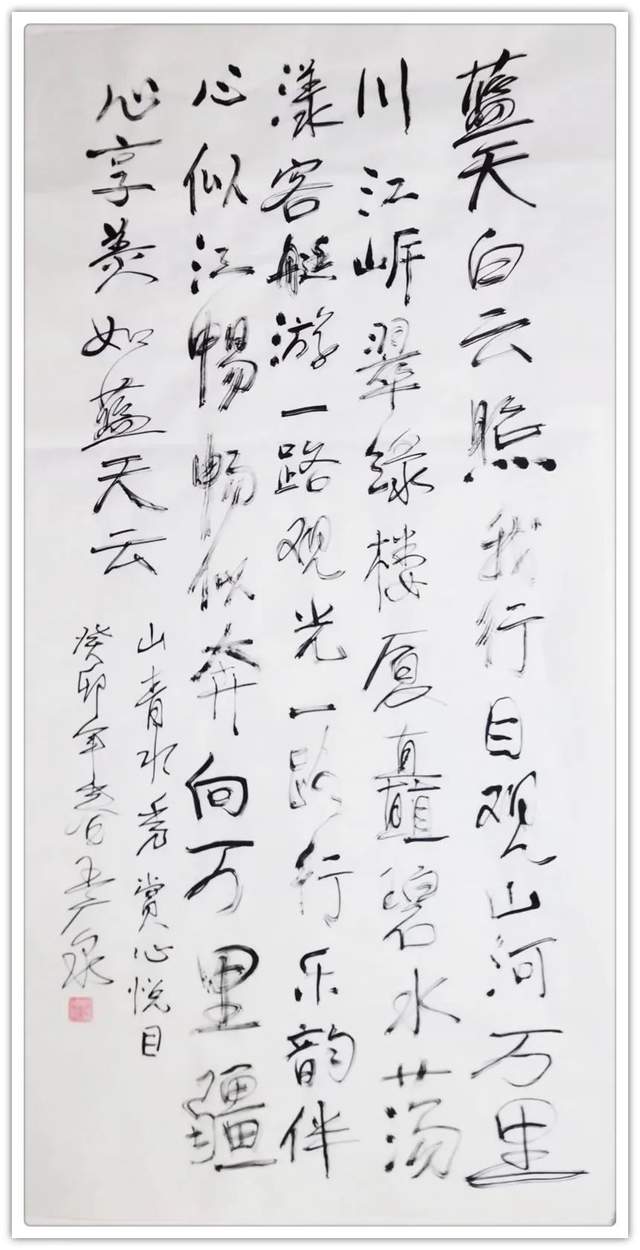 蓝天白云照我行目观山河万里
川江岍翠绿楼厦矗碧水荡
漾客艇游一路观光一路行乐韵伴
心似江畅畅似奔向万里疆
心享美如蓝天云
山青水秀赏心悦目
癸卯年春日王广泉